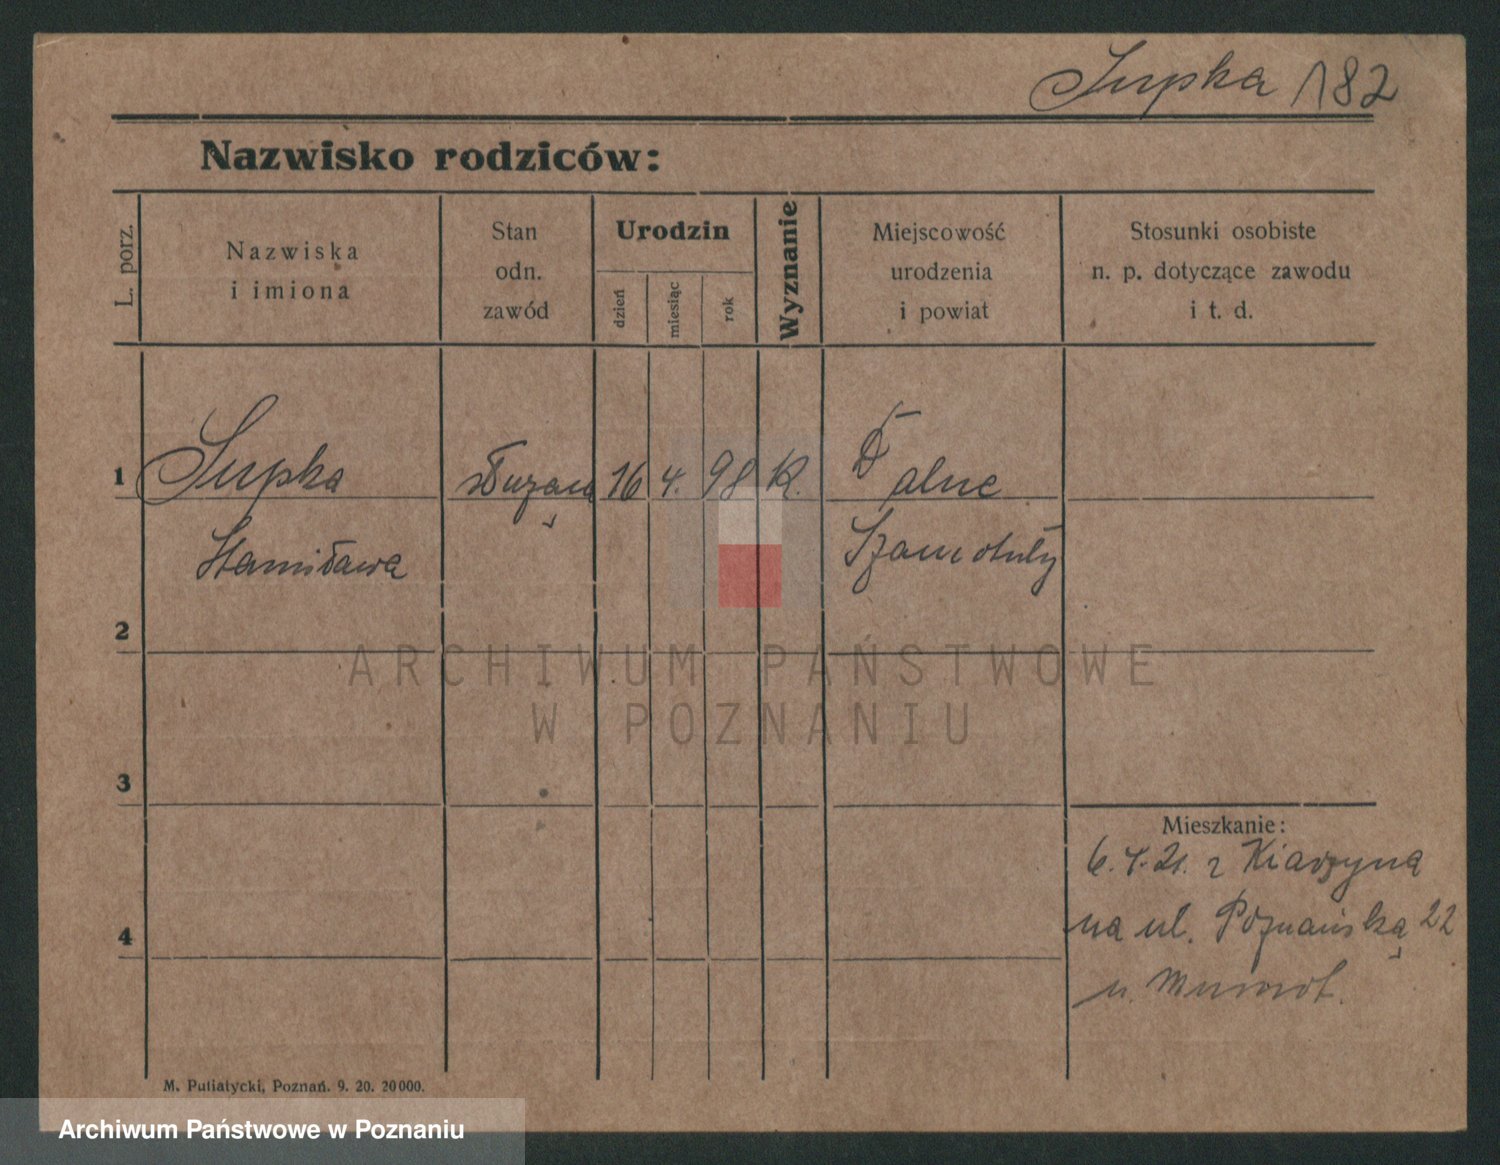 Supka 182
Nazwisko rodziców:
L. porz.
Nazwiska
i imiona
Stan
odn.
zawód
Urodzin
dzień
miesiąc
rok
Wyznanie
Miejscowość
urodzenia
i powiat
Stosunki osobiste
n. p. dotyczące zawodu
i t. d.
1
Supka służąca 16 4. 98 K.
Stanisława Szamotuły
2
3
4
Mieszkanie:
6.4.21. z Kiarzyna
na ul. Poznańską 22
u.
M. Putiatycki, Poznań. 9. 20. 20000.
ARCHIWUM PAŃSTWOWE
W POZNANIU
Archiwum Państwowe w Poznaniu